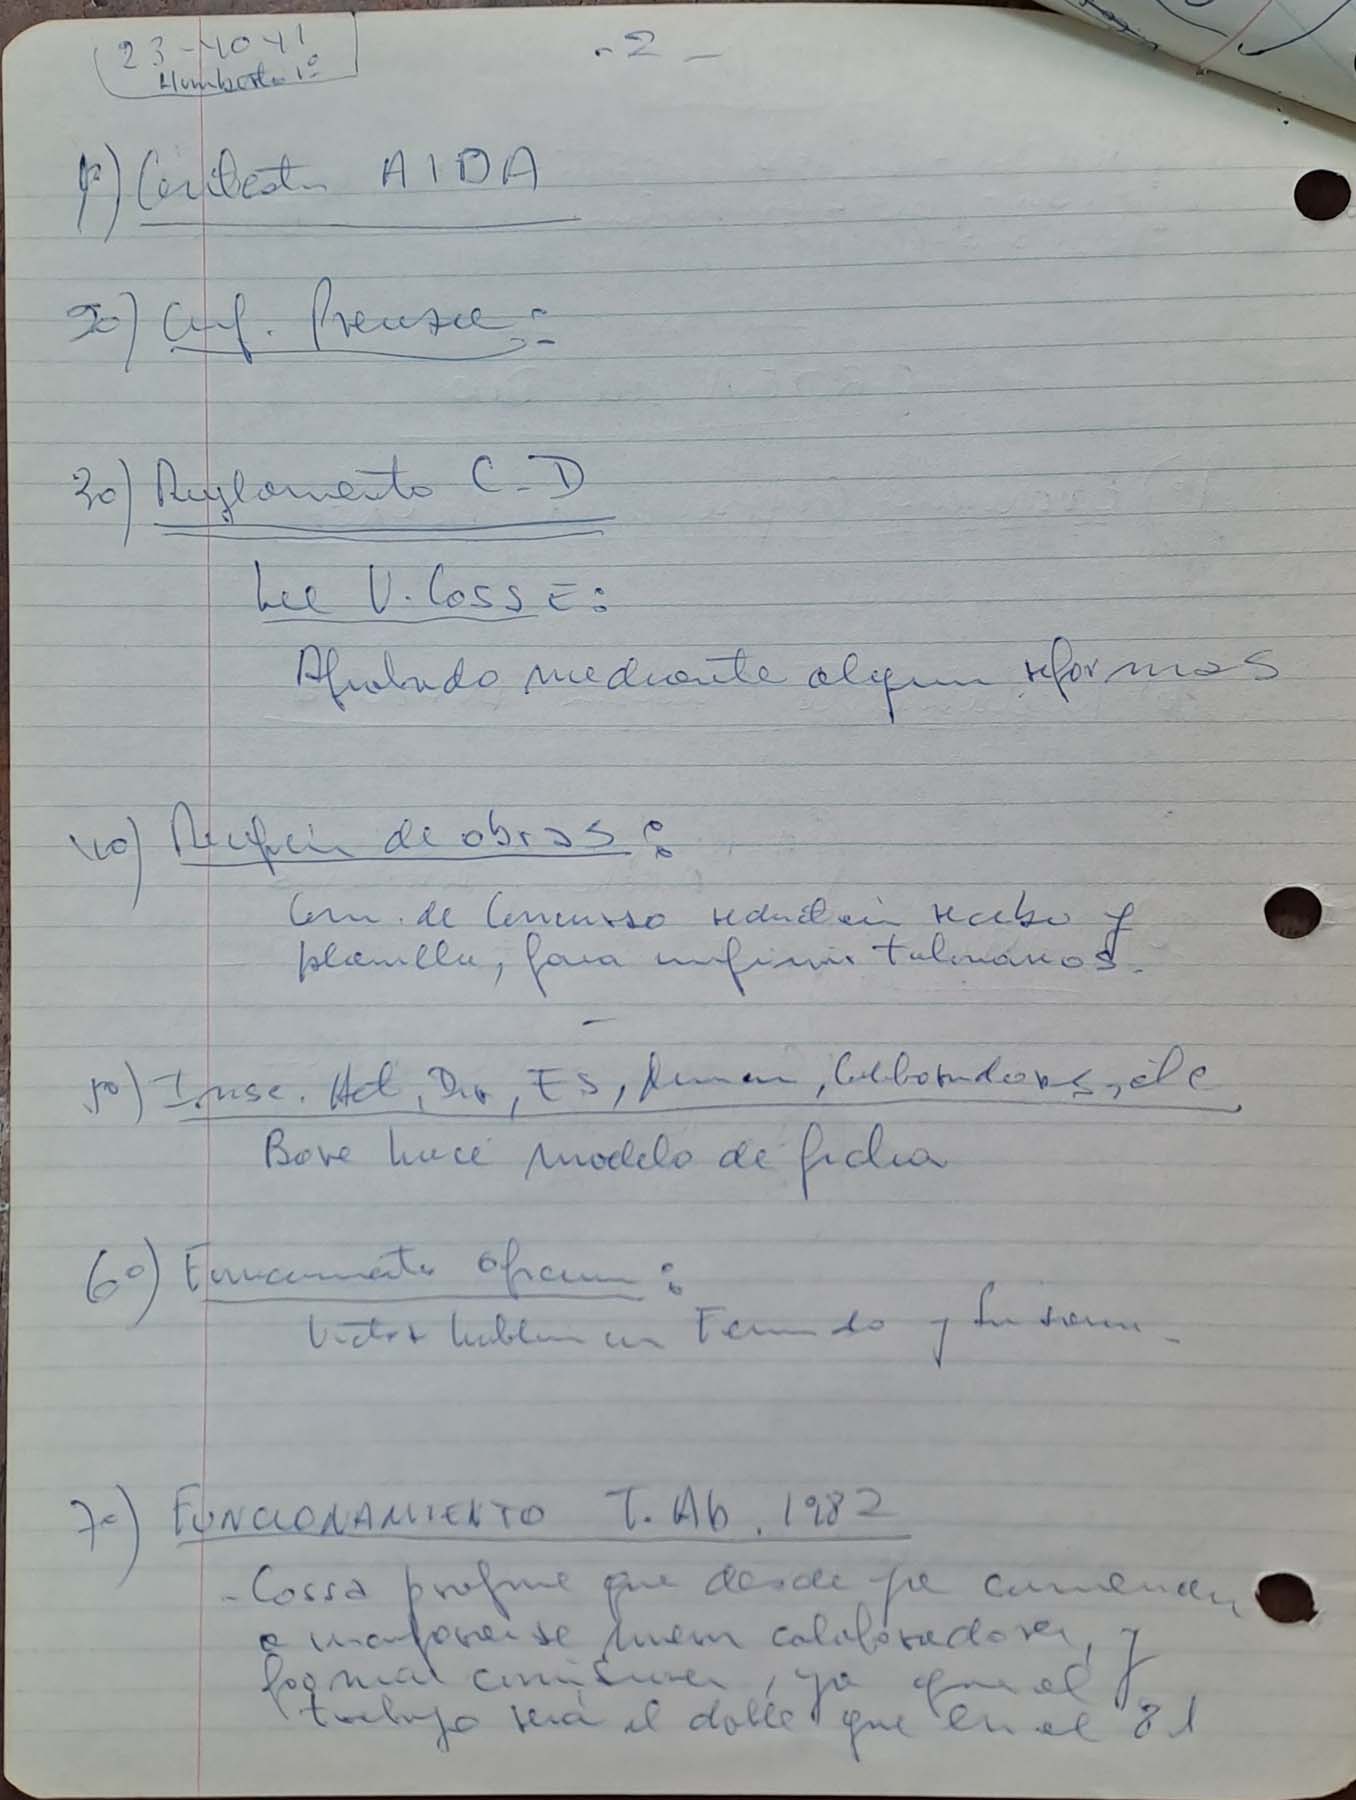 23-4041
Humberto 1º
-2-
1º) Contexto AIDA
2o) Conf. Prensa:
3o) Reglamento C-D
Lee V. Cosse:
Aprobado mediante algun reformas
4o) Recepción de obras:
Com. de Concurso redactain recibo y
planilla, para imprimir talonarios.
5o) Insc. Act, Dir, ES, , Colaboradores, etc
Bove hace modelo de ficha
6o) oficina:
Victor hablan con Fernando y Susana.
7o) FUNCIONAMIENTO T. Ab. 1982
- Cossa propone que desde ya comiencen
a incorporarse nuevos colaboradores, y
formar comisiones, ya que el
trabajo será el doble que en el 81